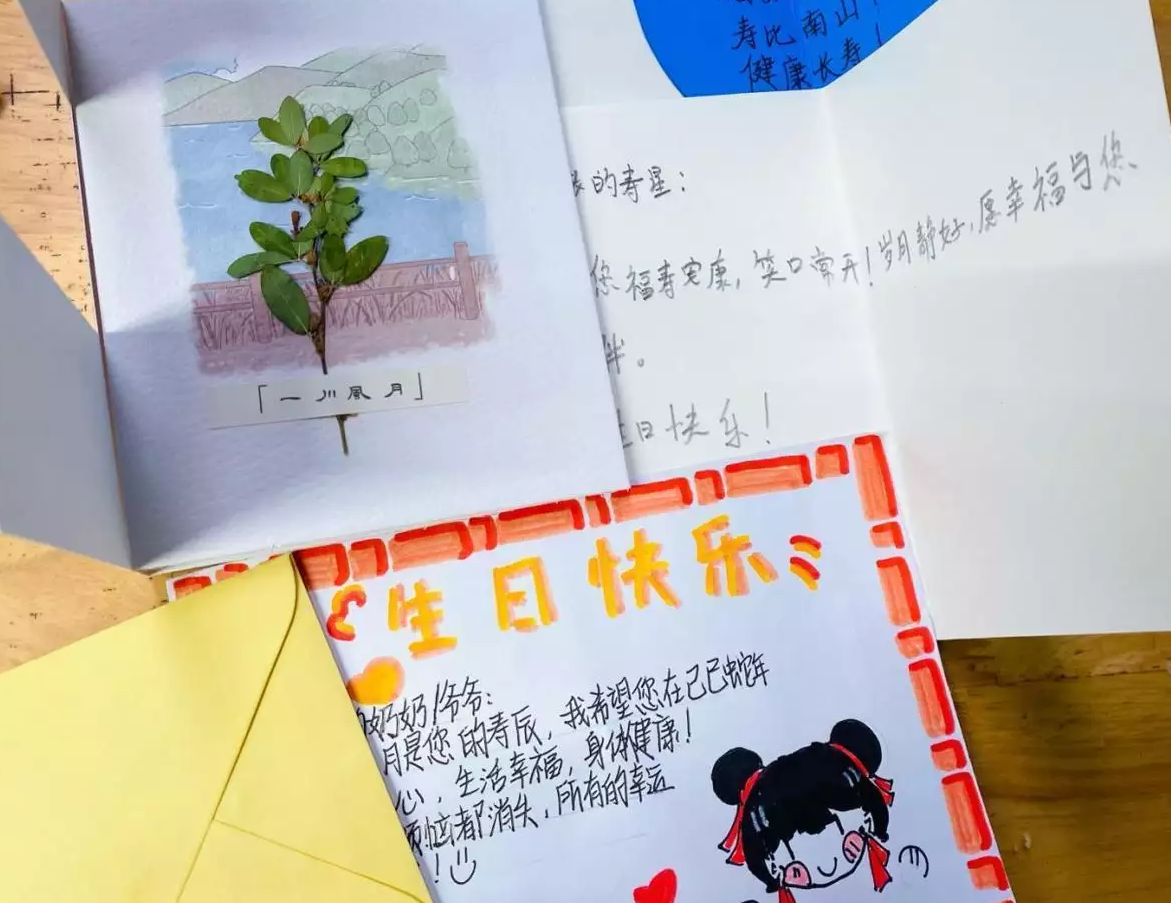 寿比南山！
健康长寿！
的寿星：
您福寿安康，笑口常开！岁月静好，愿幸福与您
伴。
生日快乐！
「一川風月」
生日快乐
奶奶/爷爷：
月是您的寿辰，我希望您在己巳蛇年
心，生活幸福，身体健康！
烦恼都消失，所有的幸运
！